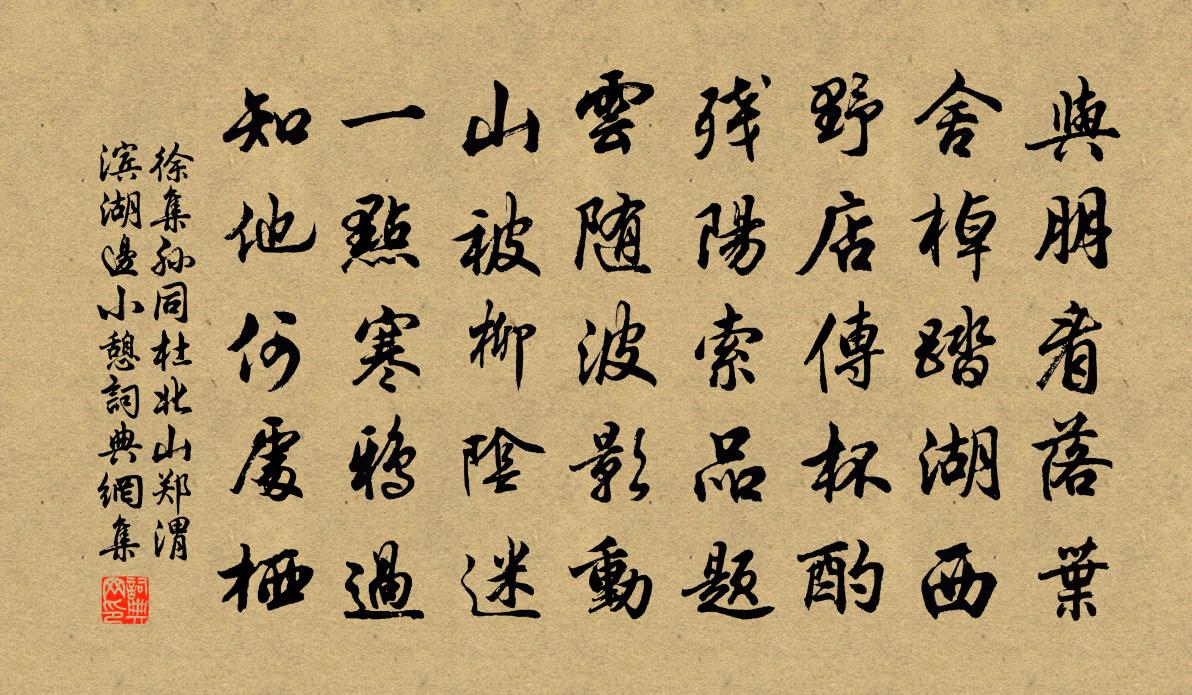 與朋看落葉
舍棹踏湖西
野店傳杯酌
残陽索品题
雲随波影動
山被柳陰迷
一點寒鴉過
知他何處栖
徐集孙同杜北山郑渭
滨湖邊小憩詞典網集
詞典网印